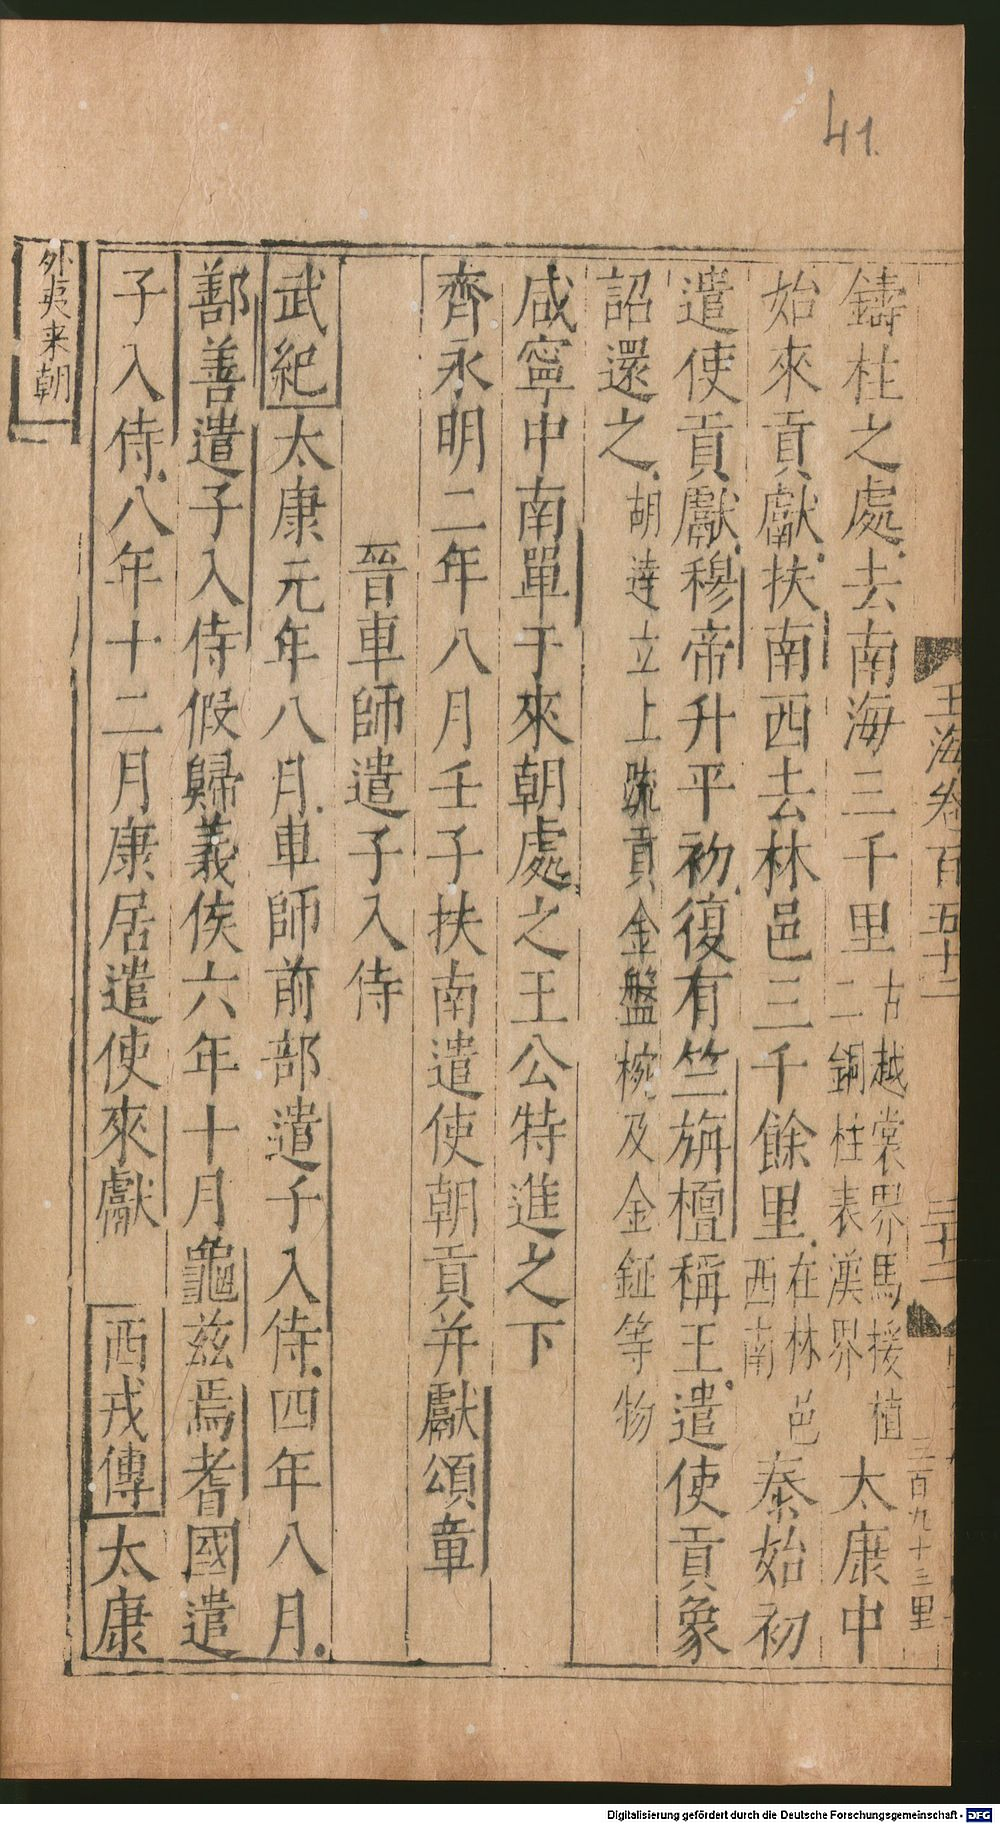 41.
玉海卷百五十二
三十二
三百九十三里
鑄柱之處去南海三千里古越裳界馬援植二銅柱表漢界太康中
始來貢獻扶南西去林邑三千餘里在林邑西南泰始初
遣使貢獻穆帝升平初復有竺旃檀稱王遣使貢象
詔還之胡達立上疏貢金盤椀及金鉦等物
咸寧中南單于來朝處之王公特進之下
齊永明二年八月壬子扶南遣使朝貢并獻頌章
晉車師遣子入侍
武紀太康元年八月車師前部遣子入侍四年八月
鄯善遣子入侍假歸義侯六年十月龜玆焉耆國遣
子入侍八年十二月康居遣使來獻 西戎傳太康
外夷来朝
Digitalisierung gefördert durch die Deutsche Forschungsgemeinschaft - DFG